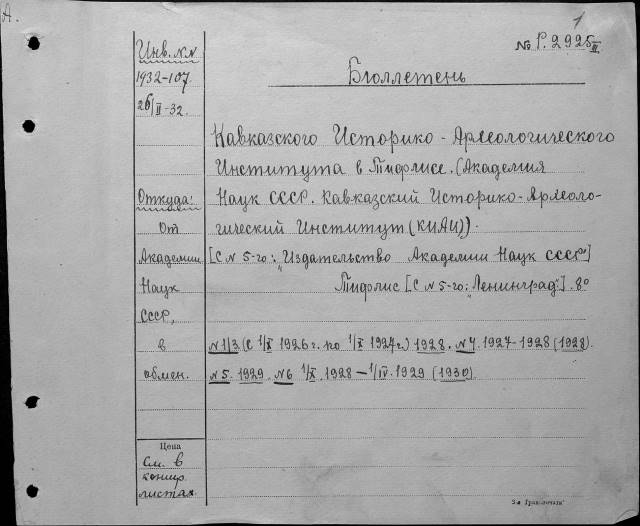 А.
1
№ Р. 2925/III
Инв. №№
1932-107
26/II-32.
Бюллетень
Кавказского Историко-Археологического
Института в Тифлисе. (Академия
Откуда:
Наук СССР. Кавказский Историко-Археоло-
От
гический Институт (КИАИ)).
Академии
[С № 5-го: „Издательство Академии Наук СССР"]
Наук
Тифлис [С № 5-го: „Ленинград"]. 8°
СССР,
в
№1/3 (с 1/X 1926 г. по 1/X 1927 г.) 1928. №4. 1927-1928 (1928).
обмен.
№5. 1929. №6 1/X. 1928 — 1/IV. 1929 (1930)
Цена
См. в
листах.